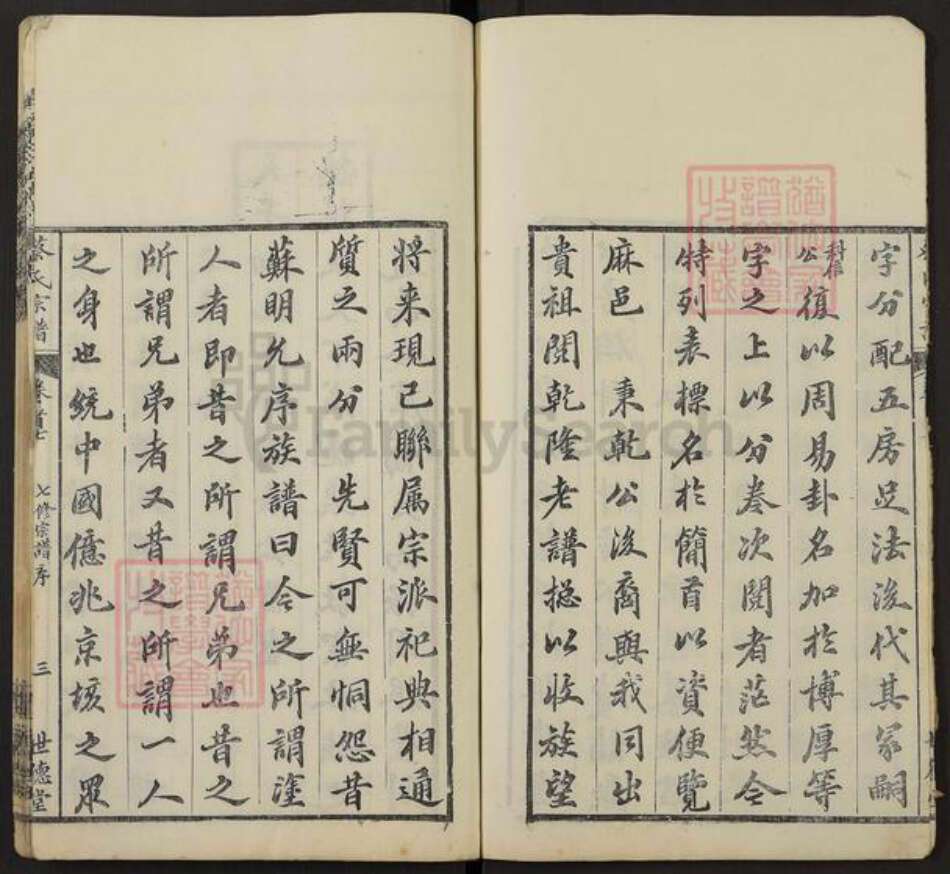 字分配五房足法後代其冢嗣
科保公復以周易卦名加於博厚等
字之上以分卷次閱者茫然今
特列表標名於簡首以資便覽
麻邑 秉乾公後裔與我同出
貴祖閱乾隆老譜摠以收族望
將来現已聯属宗派祀典相通
質之兩分 先賢可無恫怨昔
蘇明允序族譜曰今之所謂塗
人者即昔之所謂兄弟也昔之
所謂兄弟者又昔之所謂一人
之身也統中國億兆京垓之眾
氏宗譜 卷首 七修宗譜序 三 世德堂
FamilySearch